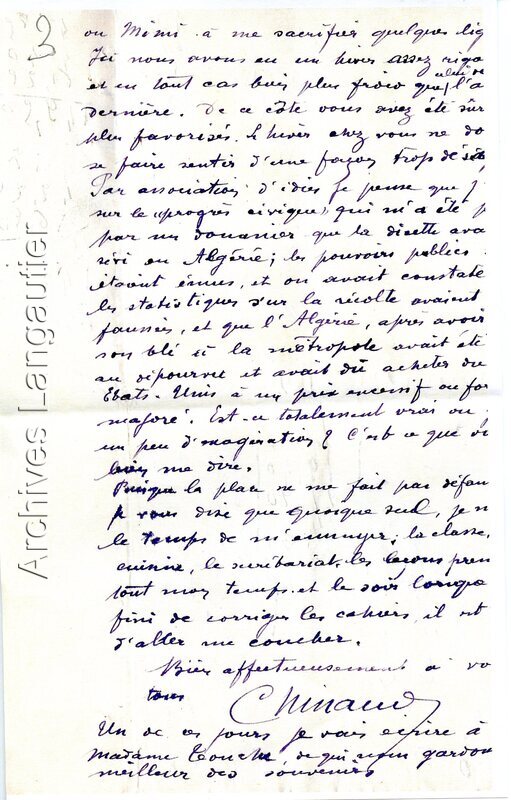 ou Mimi à me sacrifier quelques lig
Ici nous avons eu un hiver assez rigo
et en tout cas bien plus froid que celui de l'a
dernière. De ce côté vous avez été sûr
plus favorisés. L'hiver chez vous ne do
se faire sentir d'une façon trop dés
Par association d'idées je pense que j'
sur le "progrès civique" qui m'a été p
par un douanier que la disette ava
sévi en Algérie ; les pouvoirs publics
étaient émus, et on avait constaté
les statistiques sur la récolte avaient
faussées, et que l'Algérie, après avoir
son blé à la métropole avait été
au dépourvu et avait dû acheter du
Etats-Unis à un prix excessif ou for
majoré. Est-ce totalement vrai ou
un peu d'imagination ? C'est ce que vo
bien me dire.
Puisque la place ne me fait pas défau
je vous dire que quoique seul, je n
le temps de m'ennuyer ; la classe,
cuisine, le secrétariat, les leçons pren
tout mon temps. et le soir lorsque
fini de corriger les cahiers, il est
d'aller me coucher.
Bien affectueusement à vo
tous
Chinaud
Un de ces jours je vais écrire à
Madame de qui nous gardon
meilleur des souvenirs
Archives Langautier